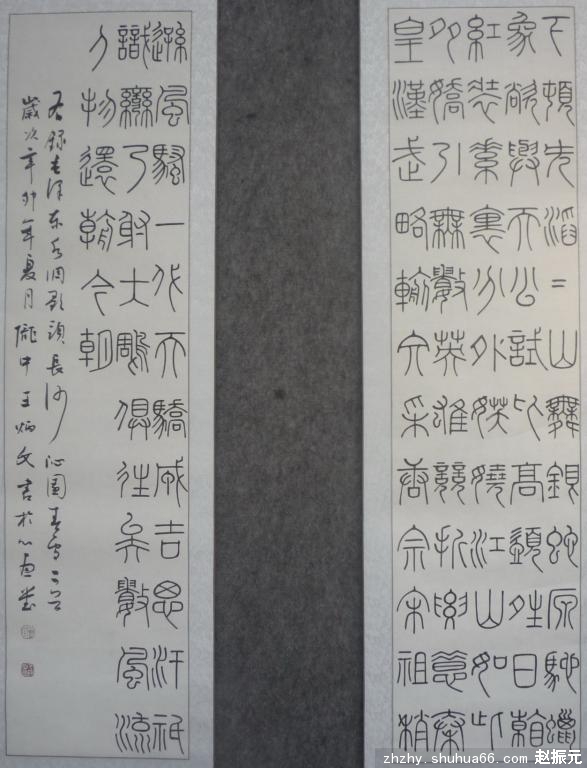 下頓失滔=山舞銀蛇原馳蠟
象欲與天公試比高須晴日看
紅裝素裹分外妖嬈江山如此
多嬌引無數英雄競折腰惜秦
皇漢武略輸文采唐宗宋祖稍
遜風騷一代天驕成吉思汗祇
識彎弓射大雕俱往矣數風流
人物還看今朝
右錄毛泽东水调歌頭長沙沁園春雪二首
歲次辛卯年夏月隴中王炳文書於
zhzhy.shuhua66.com 赵振元